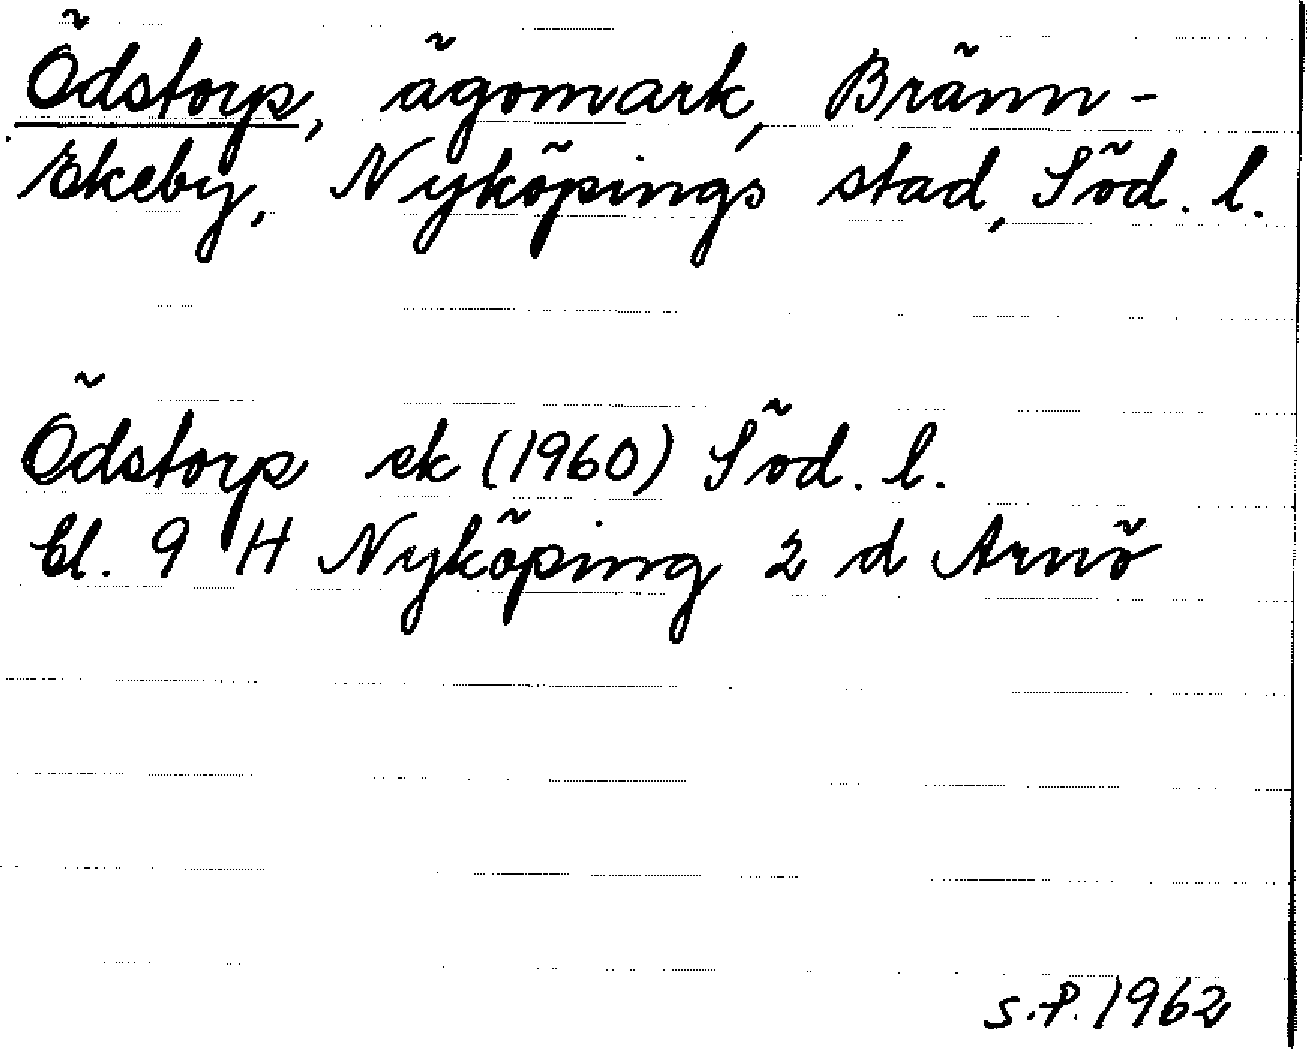 Ödstorp, ägomark, Bränn-
Ekeby, Nyköpings stad, Söd. l.
Ödstorp ek (1960) Söd. l.
Bl. 9 H Nyköping 2 d Arnö
S.P. 1962